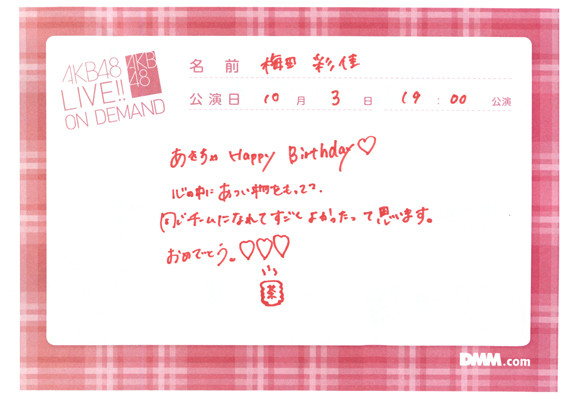 AKB48
LIVE!!
ON DEMAND
AKB
48
名前 梅田 彩佳
公演日 10月 3日 19:00 公演
あきちゃ Happy Birthday♡
心の中にあつい物をもってて、
同じチームになれてすごくよかったって思います。
おめでとう。♡♡♡
茶
DMM.com